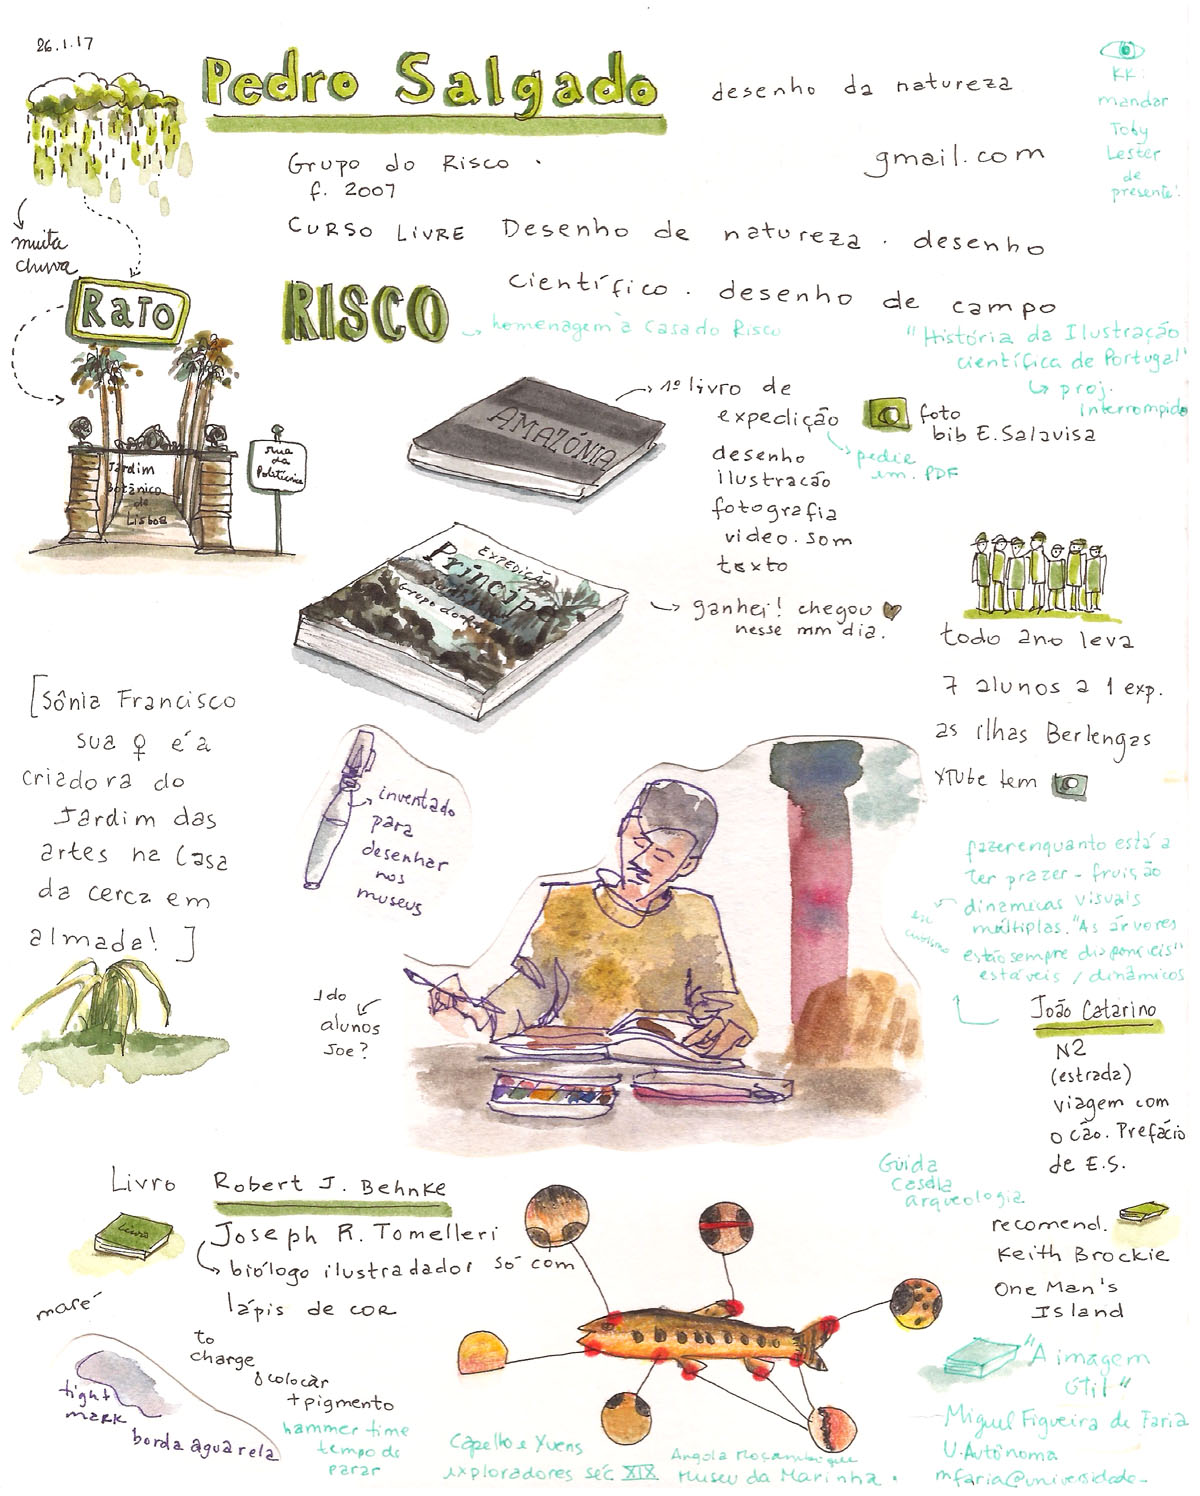 26.1.17
Pedro Salgado
desenho da natureza
gmail.com
KK:
mandar
Toby
Lester
de
presente!
Grupo do Risco.
f. 2007
CURSO LIVRE Desenho de natureza. desenho
científico. desenho de campo
muita
chuva
RATO
RISCO
homenagem à Casa do Risco
"História da Ilustração
científica de Portugal"
proj.
interrompido
Jardim
Botânico
de
Lisboa
rua
da
Politécnica
AMAZÓNIA
1º livro de
expedição
desenho
ilustracão
fotografia
video. som
texto
pedir
em. PDF
foto
bib E. Salavisa
EXPEDIÇÃO
Príncipe
Grupo do
ganhei! chegou
nesse mm dia.
todo ano leva
7 alunos a 1 exp.
as ilhas Berlengas
YTube tem
[Sônia Francisco
sua ♀ é a
criadora do
Jardim das
artes na Casa
da cerca em
almada! ]
inventado
para
desenhar
nos
museus
1 do
alunos
Joe?
fazer enquanto está a
ter prazer - fruição
dinamicas visuais
múltiplas. "As árvores
estão sempre disponíeis"
estáveis / dinâmicos
João Catarino
N2
(estrada)
viagem com
o cão. Prefácio
de E.S.
Guida
Casela
arqueologia
recomend.
Keith Brockie
One Man's
Island
Livro Robert J. Behnke
Livro
Joseph R. Tomelleri
biólogo ilustradador só com
lápis de cor
maré
tight
mark
borda aguarela
to
charge
colocar
+ pigmento
hammer time
tempo de
parar
Capello e Yvens
exploradores séc XIX
Angola Moçambique
Museu da Marinha.
"A imagem
útil"
Miguel Figueira de Faria
U. Autônoma
mfaria@universidade-